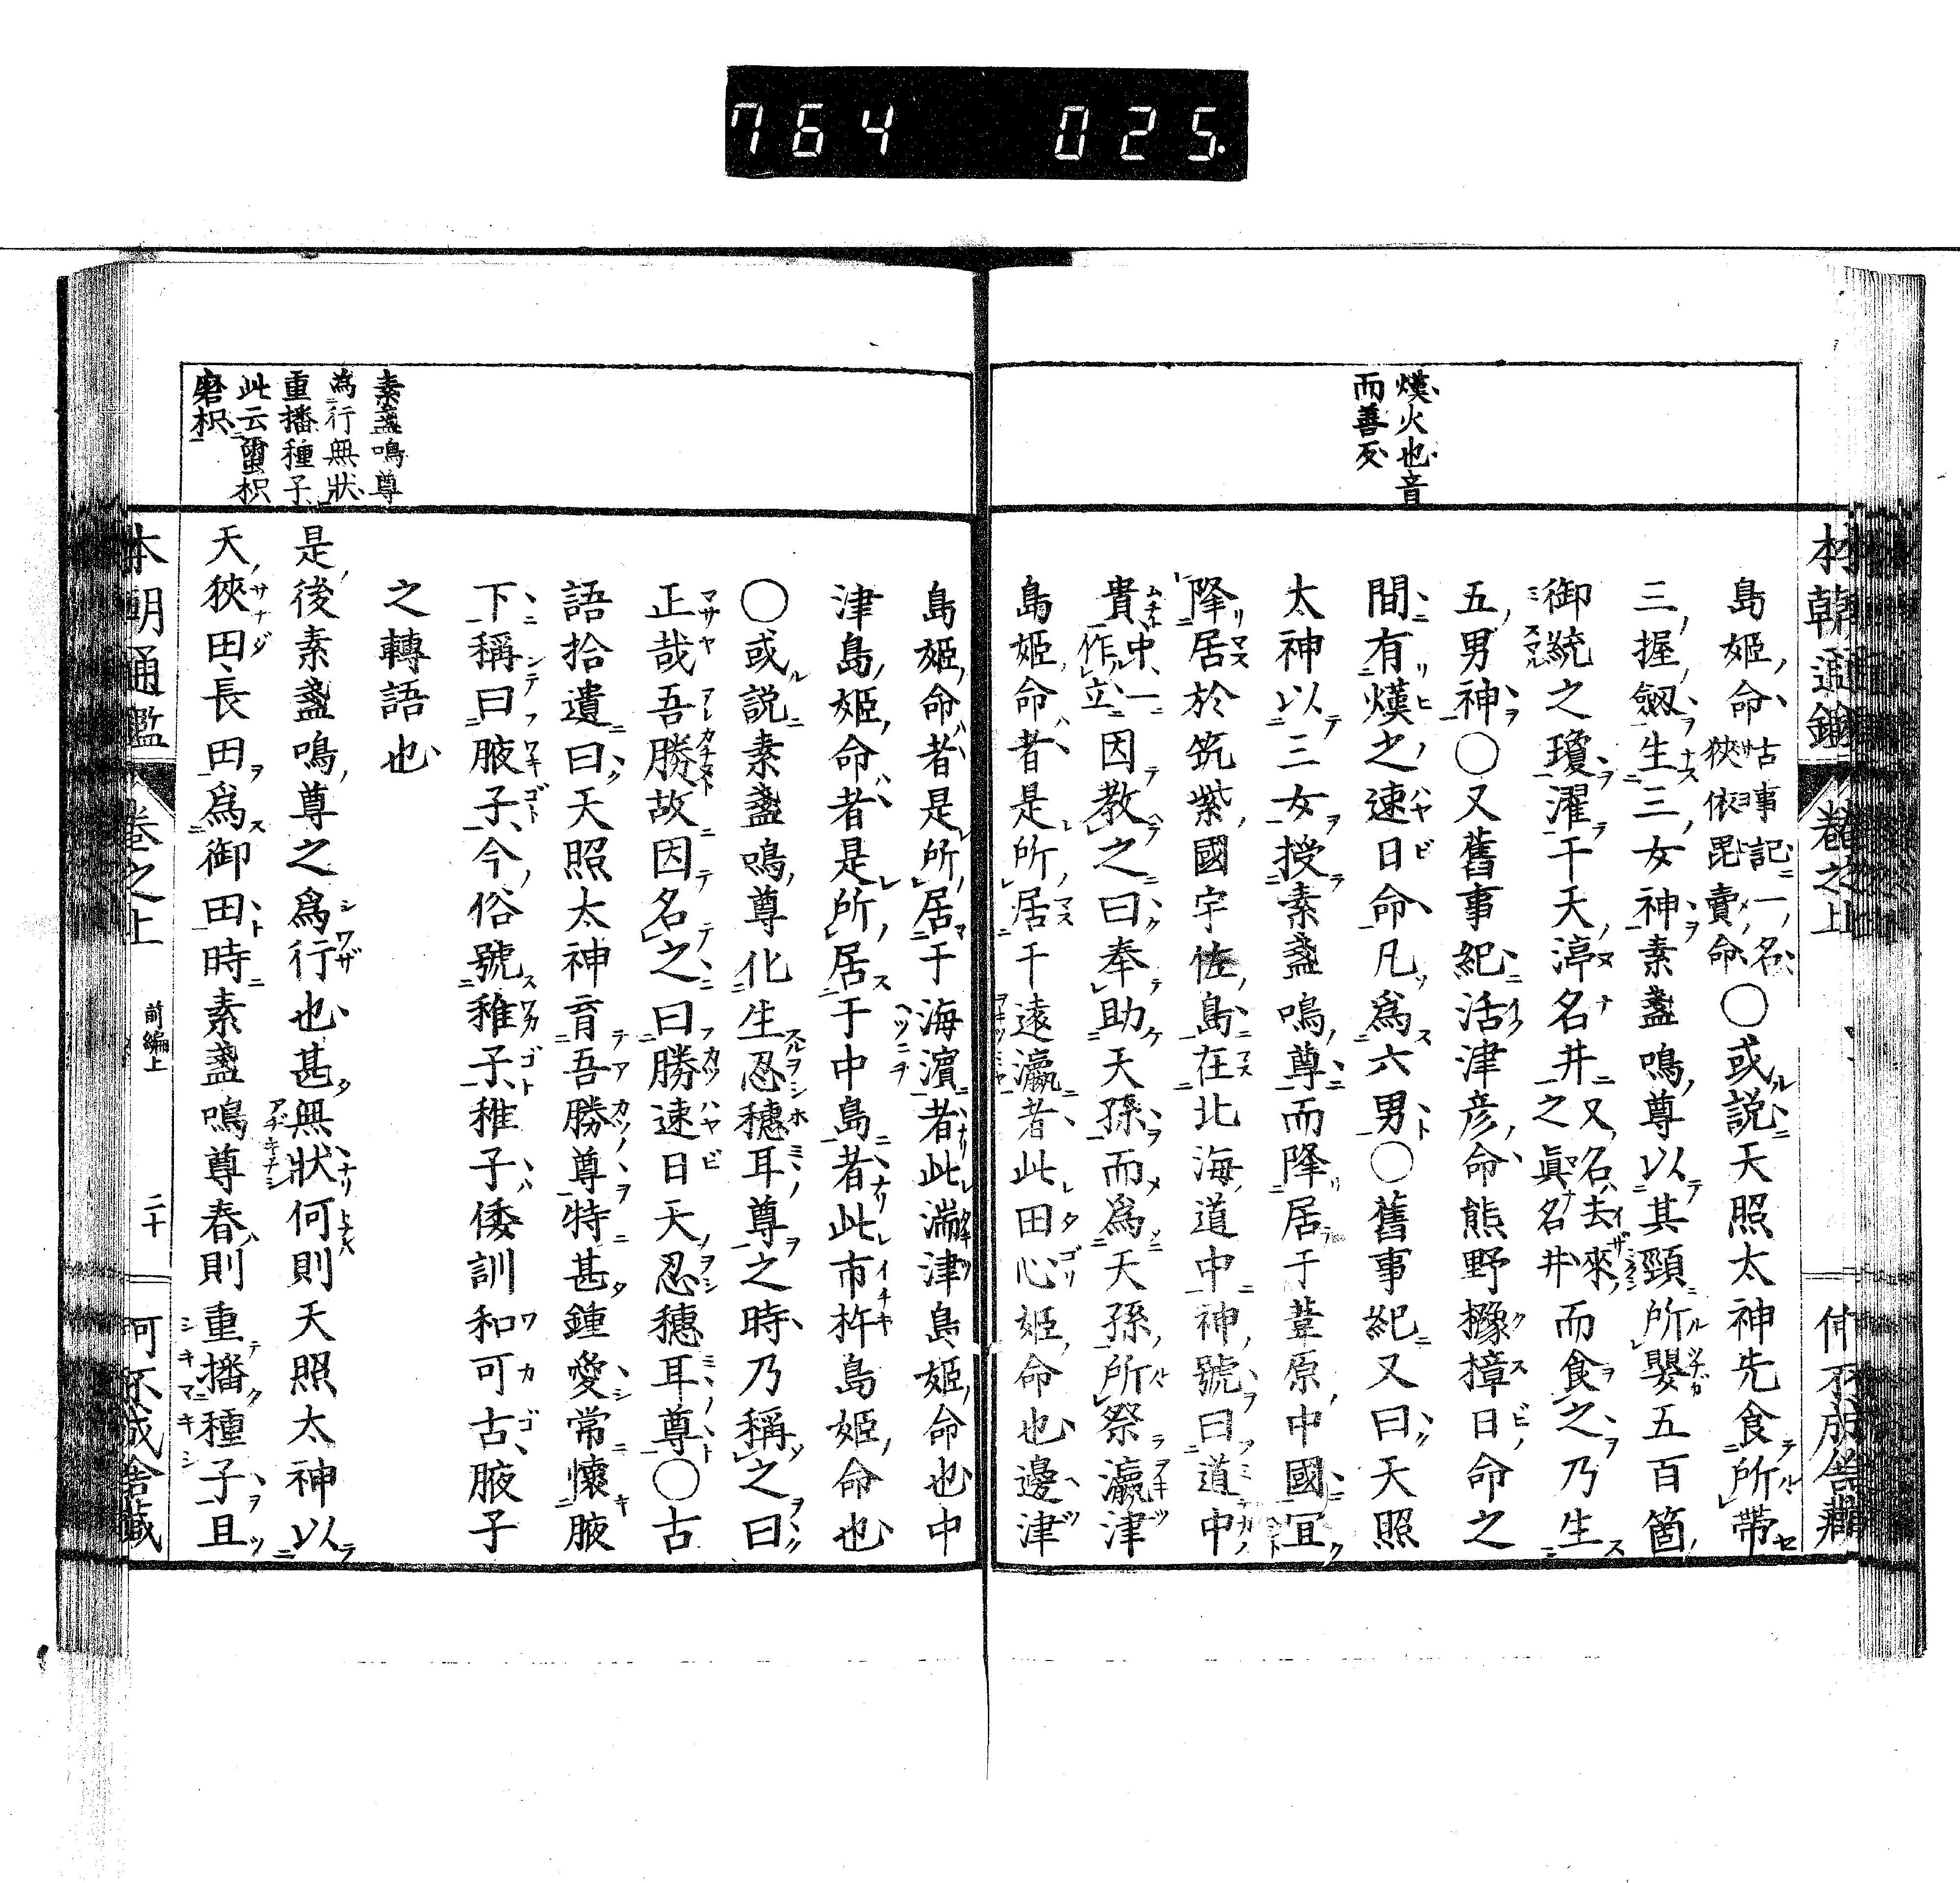 764 025.
熯火也音
而善反
島姫命古事記一名狹依毘賣命〇或說天照太神先食所帶
三握劔生三女神素盞鳴尊以其頸所嬰五百箇
御統之瓊濯于天渟名井又名去來之眞名井而食之乃生
五男神〇又舊事紀活津彦命熊野櫲樟日命之
間有熯之速日命凡爲六男〇舊事紀又曰天照
太神以三女授素盞鳴尊而降居于葦原中國宜
降居於筑紫國宇佐島在北海道中神號曰道中
貴中一作立因教之曰奉助天孫而爲天孫所祭瀛津
島姫命者是所居于遠瀛者此田心姫命也邊津
島姫命者是所居于海濵者此湍津島姫命也中
津島姫命者是所居于中島者此市杵島姫命也
〇或說素盞鳴尊化生忍穗耳尊之時乃稱之曰
正哉吾勝故因名之曰勝速日天忍穗耳尊〇古
語拾遺曰天照太神育吾勝尊特甚鍾愛常懷腋
下稱曰腋子今俗號稚子稚子倭訓和可古腋子
之轉語也
素盞鳴尊
爲行無狀
重播種子
此云璽枳
磨枳
是後素盞鳴尊之爲行也甚無狀何則天照太神以
天狹田長田爲御田時素盞鳴尊春則重播種子且
本朝通鑑 卷之上 前編上 二十